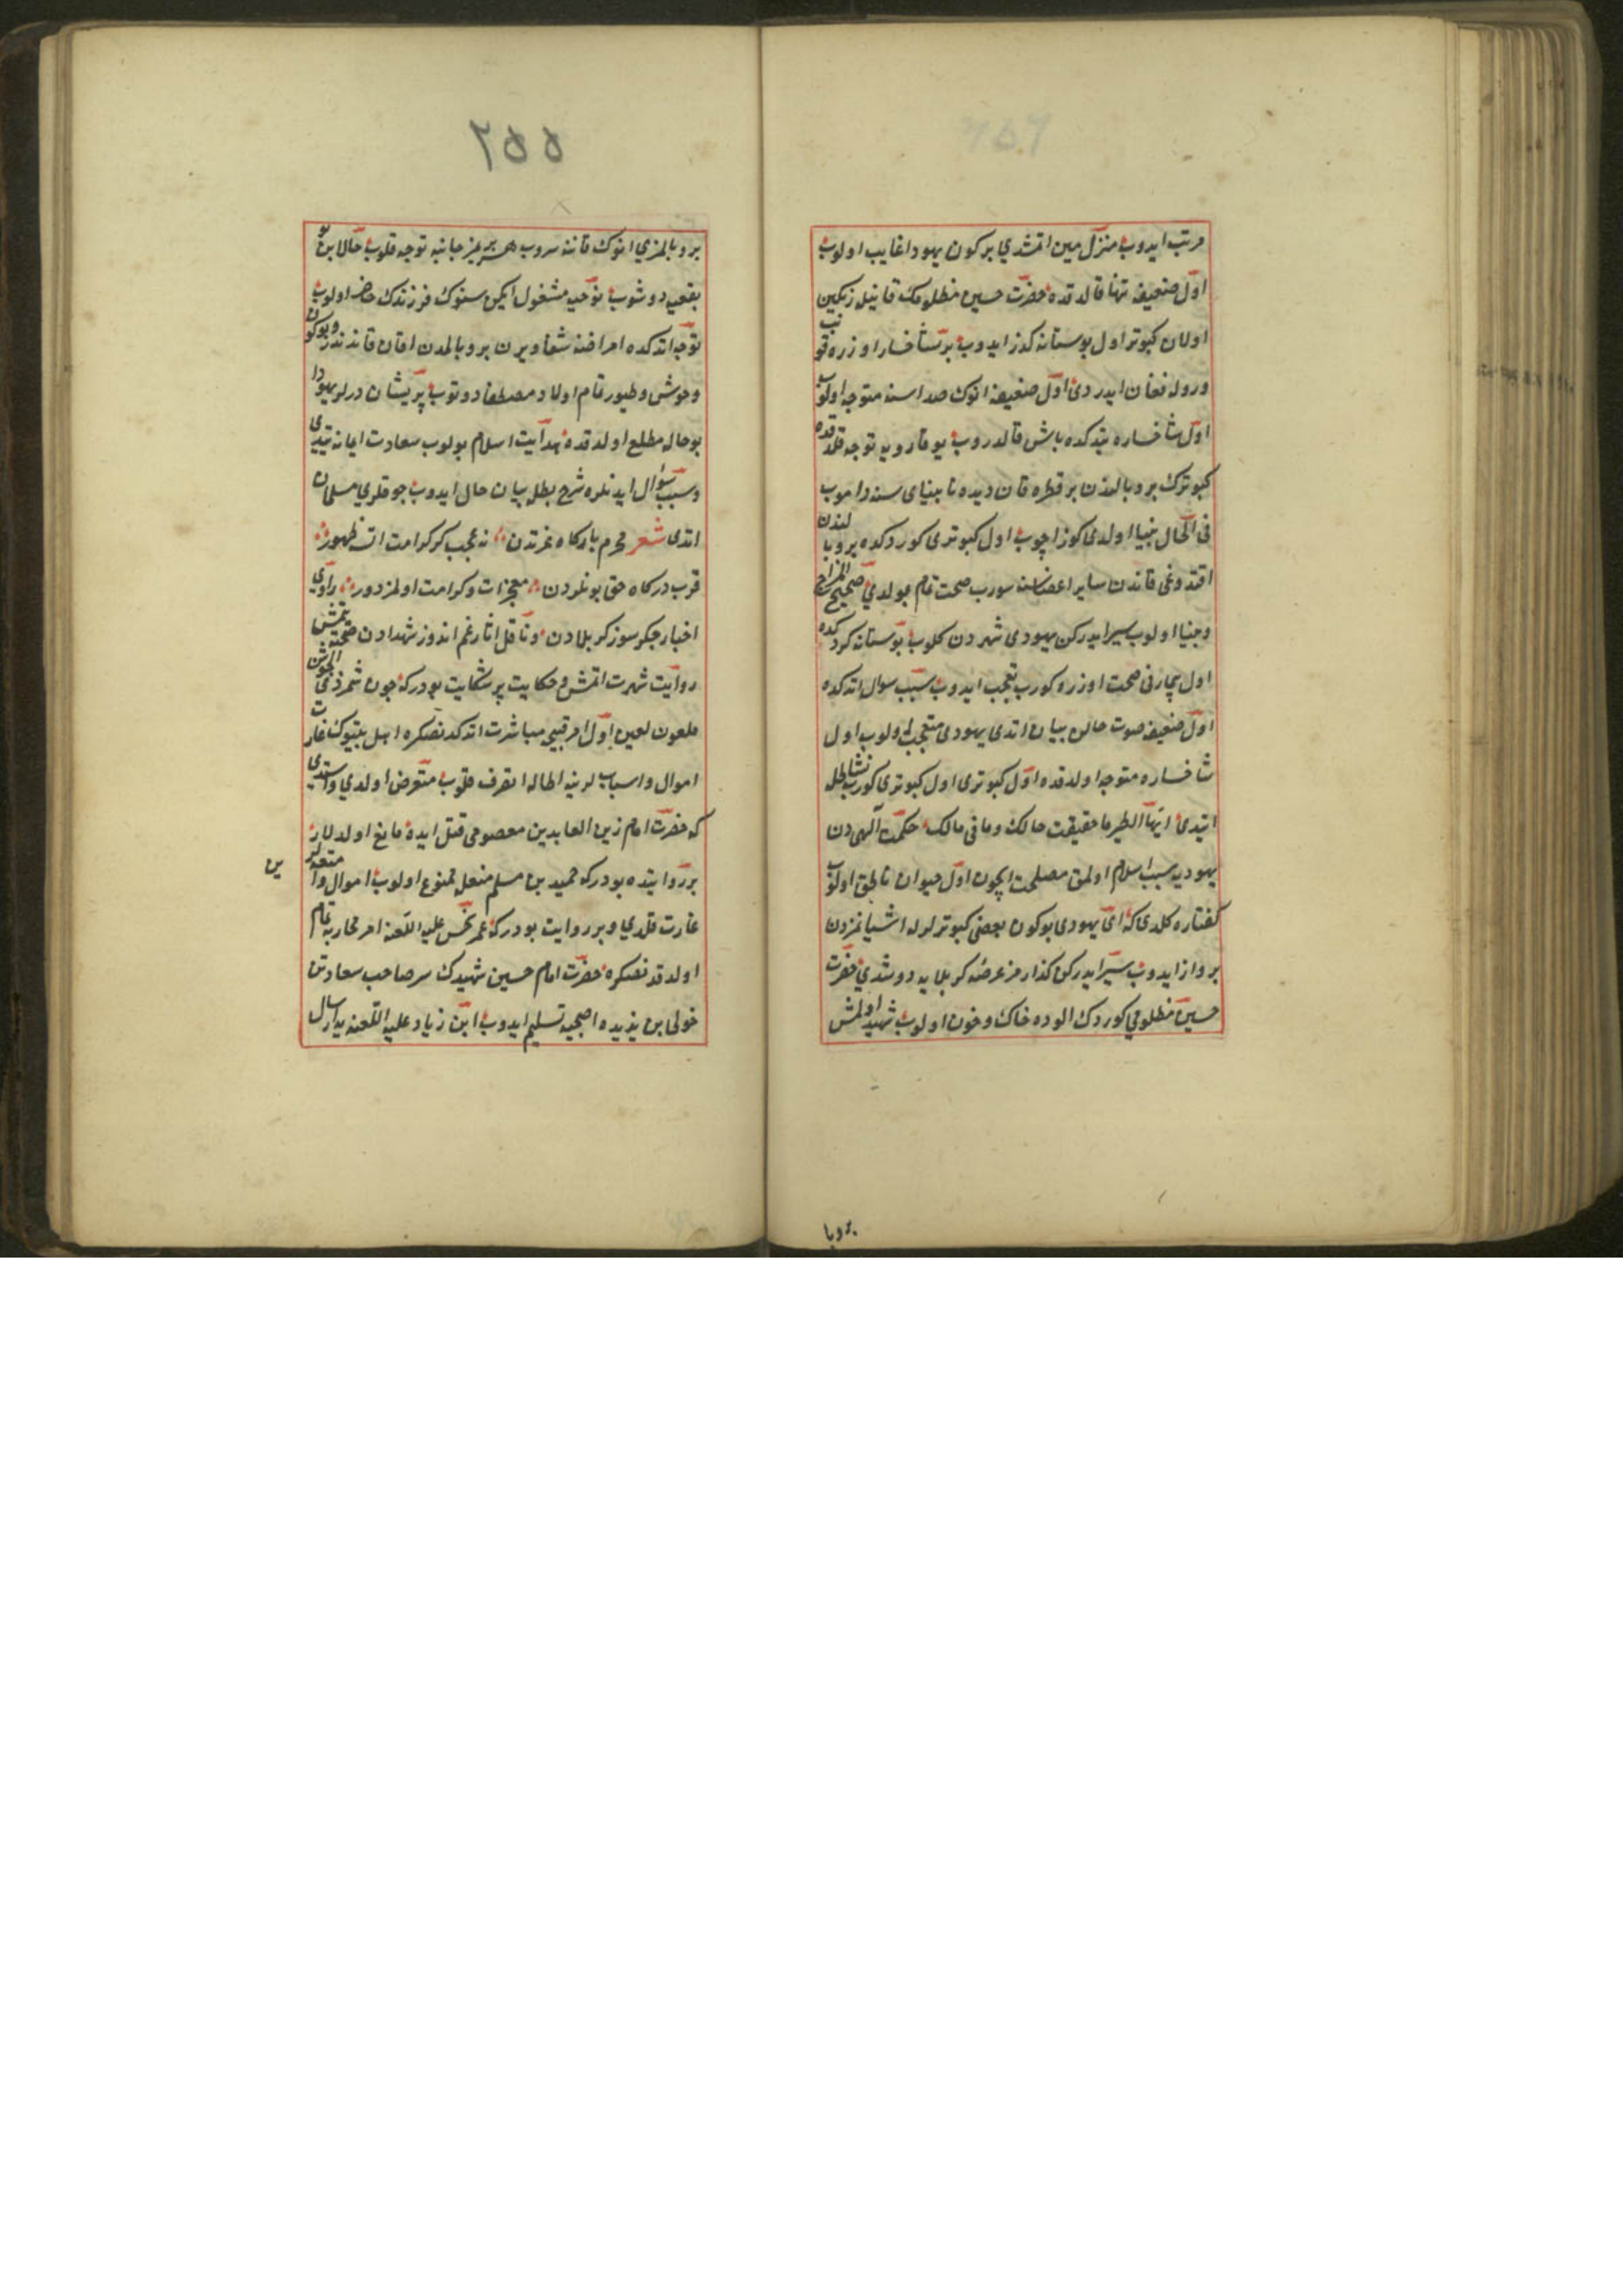 مرتب ایدوب منزل معین اتمشدی بر کون یهودا غایب اولوب
اول ضعیفه تنها قالدقده حضرت حسین مظلومک قانیله رنکین
اولان کبوتر اول بوستانه کذر ایدوب بر شاخسار اوزره قونب
ورولە فغان ایدردی اول ضعیفه انوک صداسنه متوجه اولوب
اول شاخساره یتدکده باش قالدروب یوقارویه توجه قلدقده
کبوترک بر و بالندن بر قطره قان دیده نابینای سنه داموب
فی الحال بینا اولدی کوز اچوب اول کبوتری کوردکده بر و بالندن
اقتدوغی قاندن سایر اعضاسنه سورب صحت تام بولدی صحیح المزاج
و بینا اولوب سیر ایدرکن یهودی شهردن کلوب بوستانه کردکده
اول بیچارنی صحت اوزره کورب تعجب ایدوب سبب سوال اتدکده
اول ضعیفه صوت حالن بیان اتدی یهودی متعجب اولوب اول
شاخساره متوجه اولدقده اول کبوتری اول کبوتری کورب نشاطله
ایتدی ایها الطیر ما حقیقت حالک وما فی مالک حکمت الهی دن
یهودیه سبب اسلام اولمق مصلحت ایچون اول حیوان ناطق اولوب
کفتاره کلدی که ای یهودی بوکون بعضی کبوترلرله اشیانمزدن
برواز ایدوب سیر ایدرکن کذارمز عرضه کربلایه دوشدی حضرت
حسین مظلومی کوردک الوده خاک و خون اولوب شهید اولمش
بروبا
۲۵۵
بر و بالمزی انوک قاننه سروب هر بریمز جانبه توجه قلوب حالا بن بو
بقعیه دوشوب نوحیه مشغول ایکن سنوک فرزندک حاضر اولوب
توجه اتدکده امراضنه شفا ویرن بر و بالمدن اقان قاندندر وبوکون
وحوش و طیور تمام اولاد مصطفا دوتوب پریشان درلر یهودا
بو حاله مطلع اولدقده هدایت اسلام بولوب سعادت ایمانه یتدی
و سبب سؤال ایدنلره شرح بطله بیان حال ایدوب چوقلری مسلمان
اتدی شعر محرم بارکاه عزتدن نه عجب کر کرامت اتسه ظهور
قرب درکاه حق بونلردن معجزات و کرامت اولمز دور راوی
اخبار جکرسوز کربلادن و ناقل اثار غم اندوز شهدادن صحته یتمش
روایت شهرت اتمش و حکایت پر شکایت بودرکه چون شمر ذی الجوشن
ملعون لعین اول امر قبیحه مباشرت اتدکدنصکره اهل بیتوک غارت
اموال و اسباب لرینه اطاله تصرف قلوب متعرض اولدی واستدی
که حضرت امام زین العابدین معصومی قتل ایده مانع اولدیلار
بر روایتده بودرکه حمید بن مسلم منعله ممنوع اولوب اموال و امتعه لرین
غارت قلدی و بر روایت بودرکه عمر نحس علیه اللعنه امر محاربه تمام
اولدقدنصکره حضرت امام حسین شهیدک سر صاحب سعادتن
خولی بن یزیده اصبحیه تسلیم ایدوب ابن زیاد علیه اللعنه یه ارسال